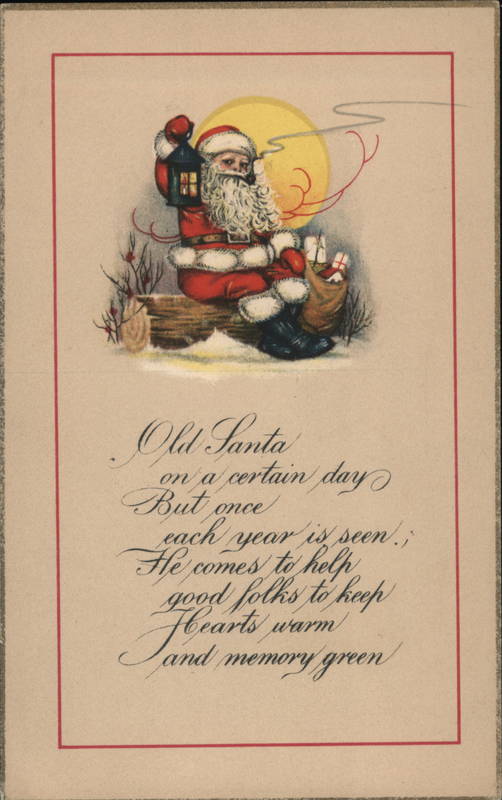 Old Santa
on a certain day
But once
each year is seen.;
He comes to help
good folks to keep
Hearts warm
and memory green